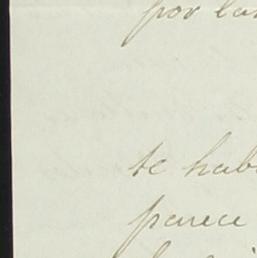 por la
te hab
parece